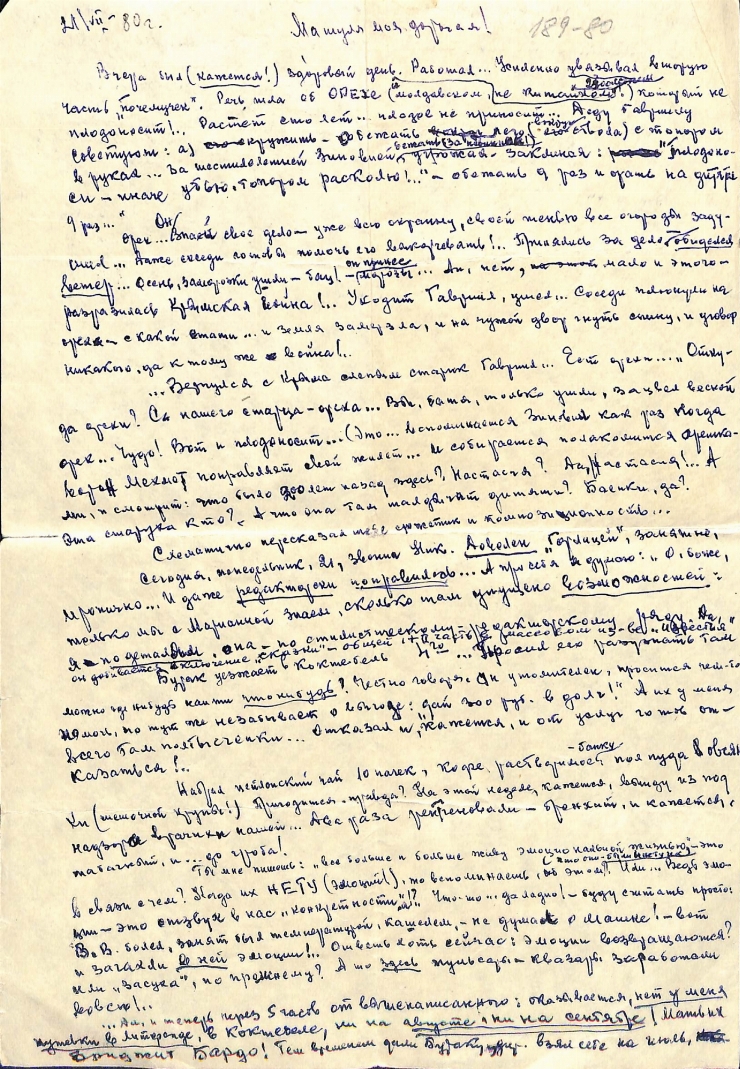 21/VII - 80 г. Машуля моя дорогая! 189-80
Вчера был (кажется!) здоровый день. Работал... Усиленно увязывал вторую
часть "почемучек". Речь шла об ОРЕХЕ (и молдавском, не китайском!) который не
плодоносит!.. Растет сто лет... плодов не приносит... Деду Гаврилу
советуют: а) окружить - обежать его (вокруг ствола) с топором
в руках... За шестилетней Зиновией бежать заклиная: "плодоно-
си - иначе убью, топором расколю!.." - обежать 9 раз и орать на дитятe
9 раз..."
Он орех... Знает свое дело - уже всю окраину, своей тенью все огороды заду-
шил... Даже соседи готовы помочь его выкорчевать!.. Принялись за дело обиделся
ветер... Осень, заморозки ушли - бац! - он принес морозы... Ан, нет, мало и этого -
разразилась Крымская война!.. Уходит Гаврил, ушел... Соседи плюнули на
орех - с какой стати... и земля замерзла, и на чужой двор гнуть спину, и уговор
никакого, да к тому же война!..
...Вернулся с Крыма слепым старик Гаврил... Ест орехи... "Отку-
да орехи? С нашего старца-ореха... Вы, батя, только ушли, зацвел весной
орех... Чудо! Вот и плодоносит... (Это... вспоминается Зиновии как раз когда
поправляет свой жилет... и собирается полакомиться орешка-
ми, и смотрит: что было 200 лет назад здесь? Настасья? Ан, Настасья!.. А
эта старуха кто? А что она там талдычит дитяти? Байки, да?
Схематично пересказал тебе сюжетик и композиционность...
Сегодня, понедельник, 21, звонил Ник. Доволен "Горлицей", занятно,
иронично... И даже редакторски понравилось... А про себя я думаю: "О, боже,
только мы с Марианной знаем, сколько там упущено возможностей:
я - по деталям, она - по стилистическому - редакторскому ряду. Да,
он добивается включение "сказки" - общей 4-й часть в массовом из-ве "Известия"
Бурак уезжает в Коктебель ... Просил его разузнать там
можно где нибудь найти что нибудь? Честно говоря, он утомителен, просится чем-то
помочь, но тут же не забывает о выгоде: дай 300 руб. в долг!" А их у меня
всего там полтысченки... Отказал и, кажется, и от услуг готов от-
казаться!..
Набрал цейлонский чай 10 пачек, кофе растворимое - банку пол пуда овсян
ки (мешочной крупы!) Пригодится - правда? На этой неделе, кажется, выйду из под
надзора врачихи нашей... Два раза рентгеновали - бронхит, и кажется,
табачный, и... до гроба!
Ты мне пишешь: "все больше и больше живу эмоциональной жизнью" - это
в связи с чем? Когда их НЕТУ (эмоций), то вспоминаешь об этом? Или... Ведь эмо-
ции - это отзвук в нас "конкретности"!? Что-то... да ладно! - буду считать просто:
"В.В. болел, занят был температурой, кашелем, - не думал о Машке! - вот
и зачахли в ней эмоции!.. Ответь хоть сейчас: эмоции возвращаются?
или "засуха", по прежнему? А то здесь пульсары - квазары заработали
вовсю!..
...Ан, и теперь через 5 часов от вышенаписанного: оказывается, нет у меня
путевки в литфонде, в Коктебеле, ни на август и ни на сентябрь!
Бриджит Бардо! Тем временем дали Бураку, взял себе на июль,